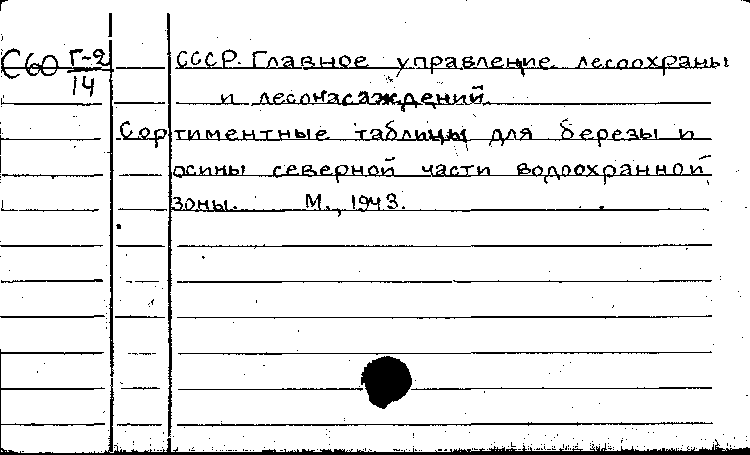 С60 Г-2
14
СССР. Главное управление лесоохраны
и лесонасаждений.
Сортиментные таблицы для березы и
осины северной части водоохранной
зоны. М., 1943.